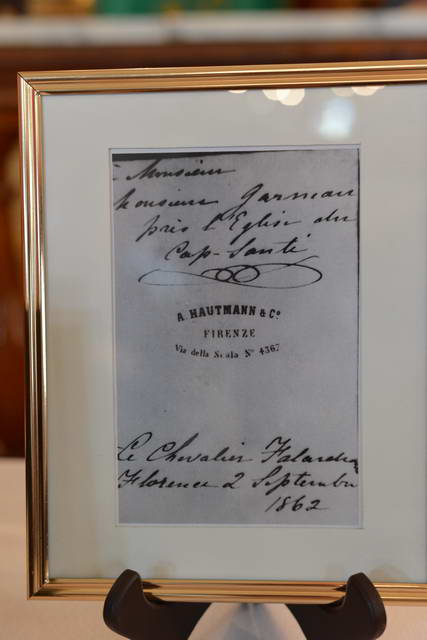 à Monsieur
Monsieur Garneau
près l'Eglise du
Cap-Santé
A. HAUTMANN & Cº
FIRENZE
Via della Scala Nº 4367
Le Chevalier Falardeau
Florence 2 Septembre
1862